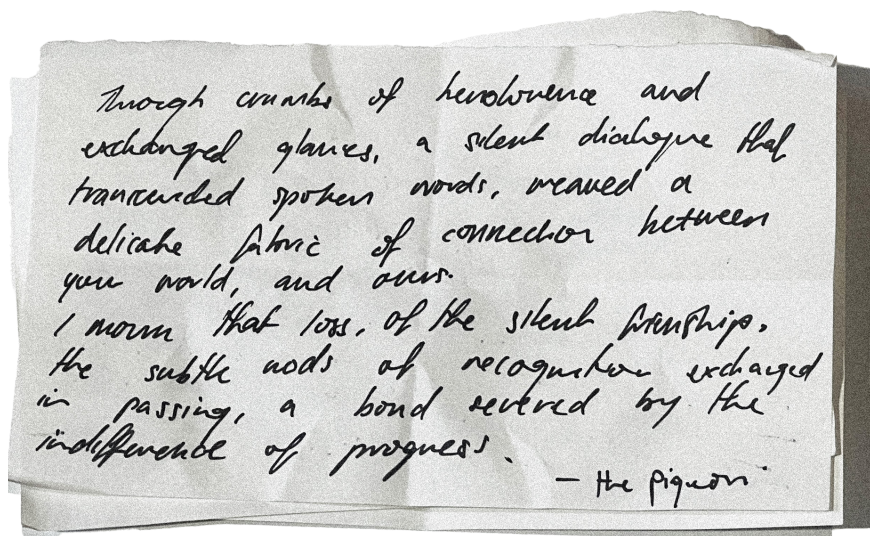 Through crumbs of benevolence and
exchanged glances, a silent dialogue that
transcended spoken words, weaved a
delicate fabric of connection between
your world, and ours.
I mourn that loss, of the silent frienship,
the subtle nods of recognition exchanged
in passing, a bond severed by the
indifference of progress.
— the pigeon